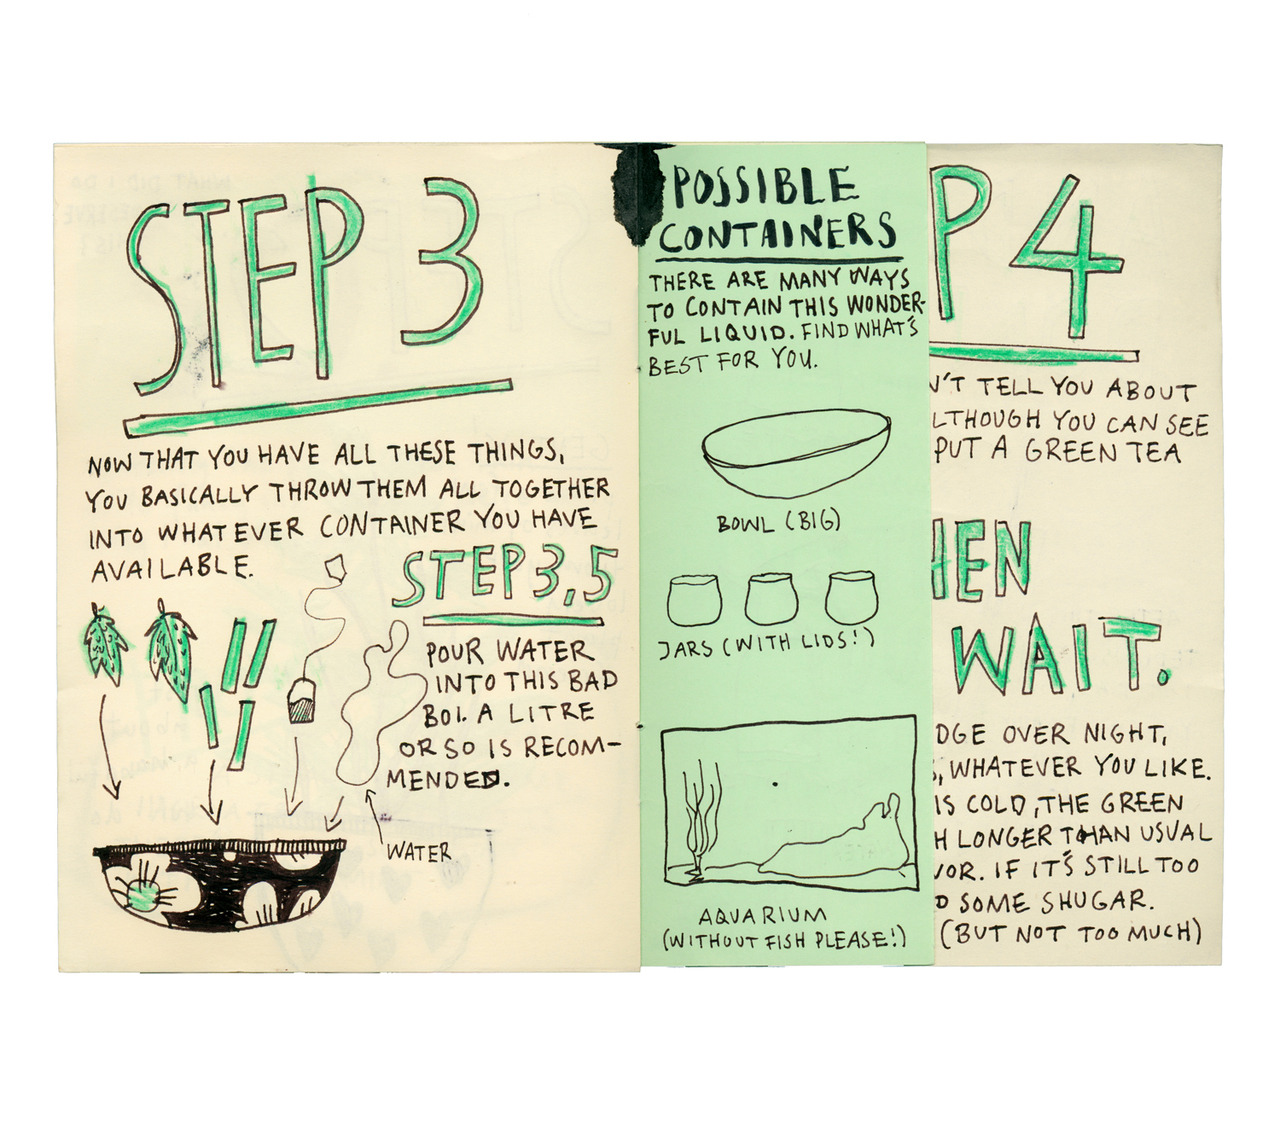 STEP 3
NOW THAT YOU HAVE ALL THESE THINGS,
YOU BASICALLY THROW THEM ALL TOGETHER
INTO WHATEVER CONTAINER YOU HAVE
AVAILABLE.
STEP 3,5
POUR WATER
INTO THIS BAD
BOI. A LITRE
OR SO IS RECOM-
MENDED.
WATER
POSSIBLE
CONTAINERS
THERE ARE MANY WAYS
TO CONTAIN THIS WONDER-
FUL LIQUID. FIND WHAT'S
BEST FOR YOU.
BOWL (BIG)
JARS (WITH LIDS!)
AQUARIUM
(WITHOUT FISH PLEASE!)
P 4
N'T TELL YOU ABOUT
LTHOUGH YOU CAN SEE
PUT A GREEN TEA
HEN
WAIT.
DGE OVER NIGHT,
S, WHATEVER YOU LIKE.
IS COLD, THE GREEN
H LONGER THAN USUAL
VOR. IF IT'S STILL TOO
D SOME SHUGAR.
(BUT NOT TOO MUCH)